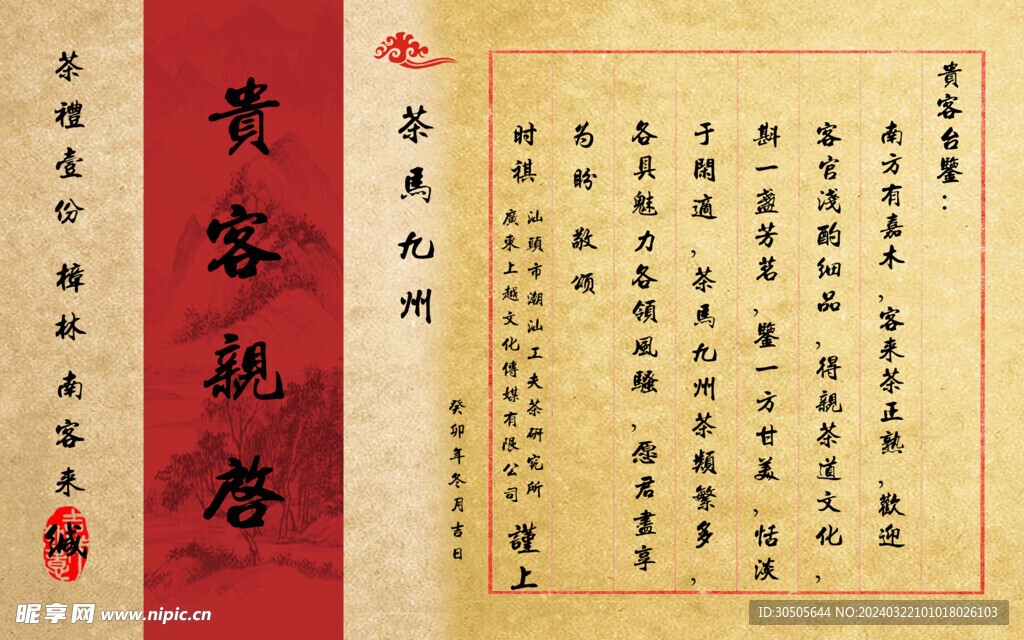 貴客台鑒：
南方有嘉木，客来茶正熟，歡迎
客官淺酌细品，得親茶道文化，
斟一盏芳茗，鑒一方甘美，恬淡
于閑適，茶馬九州茶類繁多，
各具魅力各領風騷，愿君盡享
为盼 敬颂
时祺
汕頭市潮汕工夫茶研究所
廣東上越文化傳媒有限公司
謹上
癸卯年冬月吉日
茶馬九州
貴客親啓
茶禮壹份 樟林南客来
缄
昵享网 www.nipic.cn
ID:30505644 NO:20240322101018026103